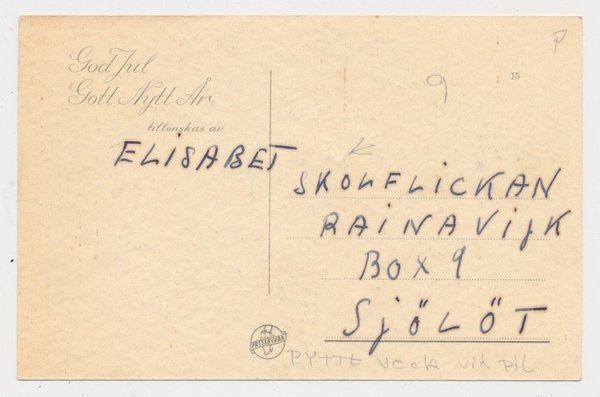 God Jul
Gott Nytt År
tillönskas av
ELISABET
P
9
15
SKOLFLICKAN
RAINAVIJK
BOX 9
SJÖLÖT
PRESSBYRÅN
PYTTE veck vid pil